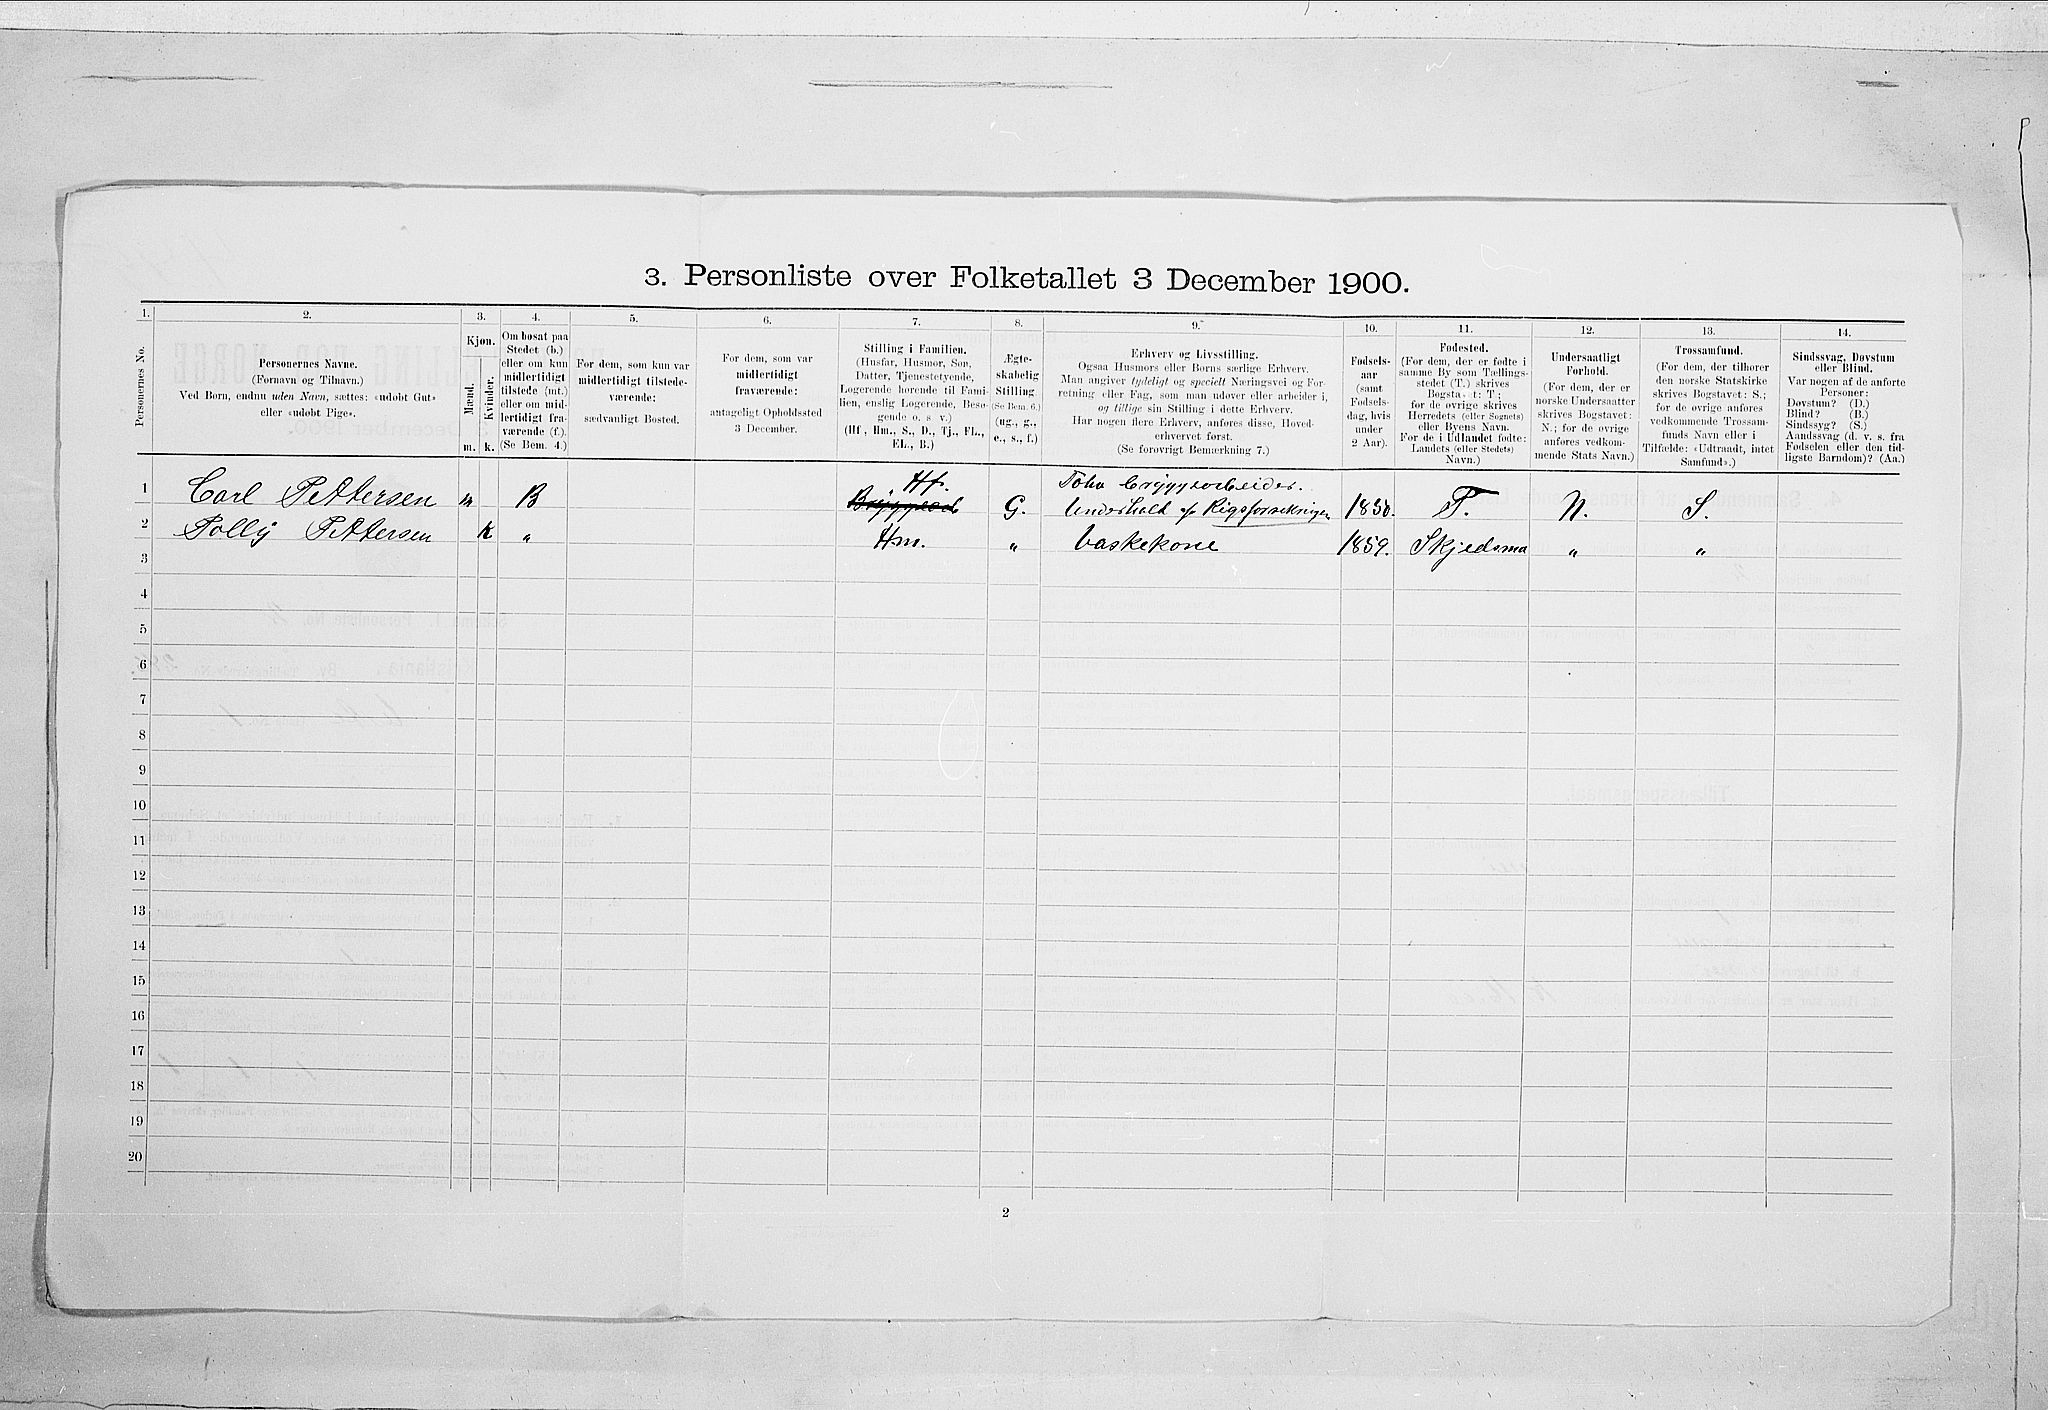 3. Personliste over Folketallet 3 December 1900.
1. 2. 3. 4. 5. 6. 7. 8. 9. 10. 11. 12. 13. 14.
Personernes No.
Personernes Navne.
(Fornavn og Tilnavn.)
Ved Børn, endnu uden Navn, sættes: «udøbt Gut»
eller «udøbt Pige».
Kjøn.
Mænd.
Kvinder.
m. k.
Om bosat paa
Stedet (b.)
eller om kun
midlertidigt
tilstede (mt.)
eller om mid-
lertidigt fra-
værende (f.).
(Se Bem. 4.)
For dem, som kun var
midlertidigt tilstede-
værende:
sædvanligt Bosted.
For dem, som var
midlertidigt
fraværende:
antageligt Opholdssted
3 December.
Stilling i Familien.
(Husfar, Husmor, Søn,
Datter, Tjenestetyende,
Logerende hørende til Fami-
lien, enslig Logerende, Besø-
gende o. s. v.)
(Hf., Hm., S., D., Tj., FL.,
EL., B.)
Ægte-
skabelig
Stilling.
(Se Bem. 6.)
(ug., g.,
e., s., f.)
Erhverv og Livsstilling.
Ogsaa Husmors eller Børns særlige Erhverv.
Man angiver tydeligt og specielt Næringsvei og For-
retning eller Fag, som man udøver eller arbeider i,
og tillige sin Stilling i dette Erhverv.
Har nogen flere Erhverv, anføres disse, Hoved-
erhvervet først.
(Se forøvrigt Bemærkning 7.)
Fødsels-
aar
(samt
Fødsels-
dag, hvis
under
2 Aar).
Fødested.
(For dem, der er fødte i
samme By som Tællings-
stedet (T.) skrives
Bogstavet: T;
for de øvrige skrives
Herredets (eller Sognets)
eller Byens Navn.
For de i Udlandet fødte:
Landets (eller Stedets)
Navn.)
Undersaatligt
Forhold.
(For dem, der er
norske Undersaatter
skrives Bogstavet:
N.; for de øvrige
anføres vedkom-
mende Stats Navn.)
Trossamfund.
(For dem, der tilhører
den norske Statskirke
skrives Bogstavet: S.;
for de øvrige anføres
vedkommende Trossam-
funds Navn eller i
Tilfælde: «Udtraadt, intet
Samfund».)
Sindssvag, Døvstum
eller Blind.
Var nogen af de anførte
Personer:
Døvstum? (D.)
Blind? (B.)
Sindssyg? (S.)
Aandssvag (d. v. s. fra
Fødselen eller den tid-
ligste Barndom)? (Aa.)
1 Carl Pettersen m B Hf. G. Bryggearbeider. Underhold af Rigsforsikringen 1850. T. N. S.
2 Polly Pettersen k „ Hm. „ Vaskekone 1859. Skjedsmo „ „
3
4
5
6
7
8
9
10
11
12
13
14
15
16
17
18
19
20
2